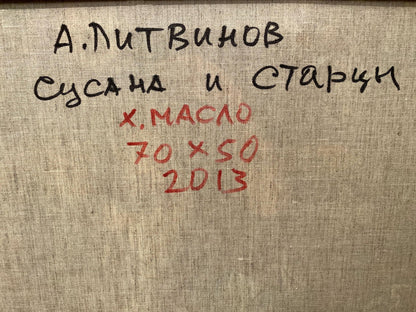 А. ЛИТВИНОВ
СУСАНА И СТАРЦЫ
Х. МАСЛО
70 × 50
2013